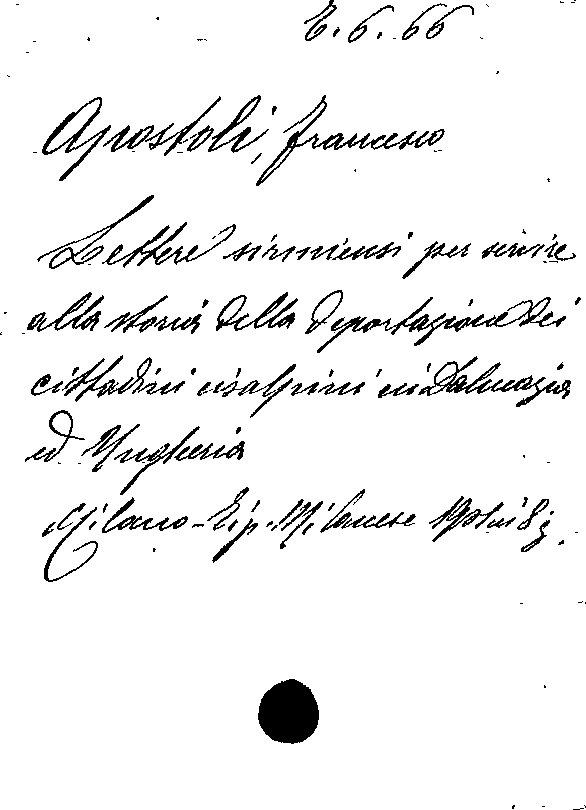 E.6.66
Apostoli, Francesco
Lettere sirmiensi per servire
alla storia della deportazione dei
cittadini cisalpini in Dalmazia
ed Ungheria
Milano - Tip. Milanese in 8º